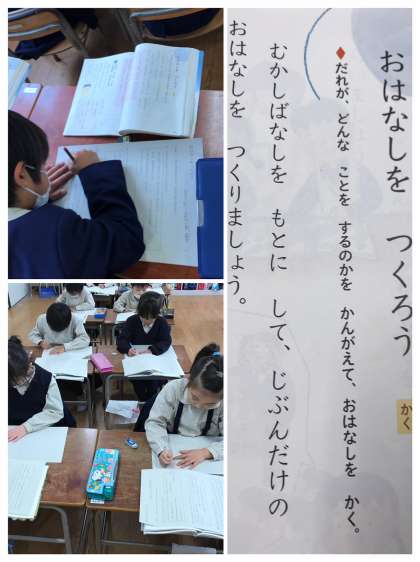 おはなしを つくろう
かく
♦だれが、どんな ことを するのかを かんがえて、おはなしを かく。
むかしばなしを もとに して、じぶんだけの
おはなしを つくりましょう。